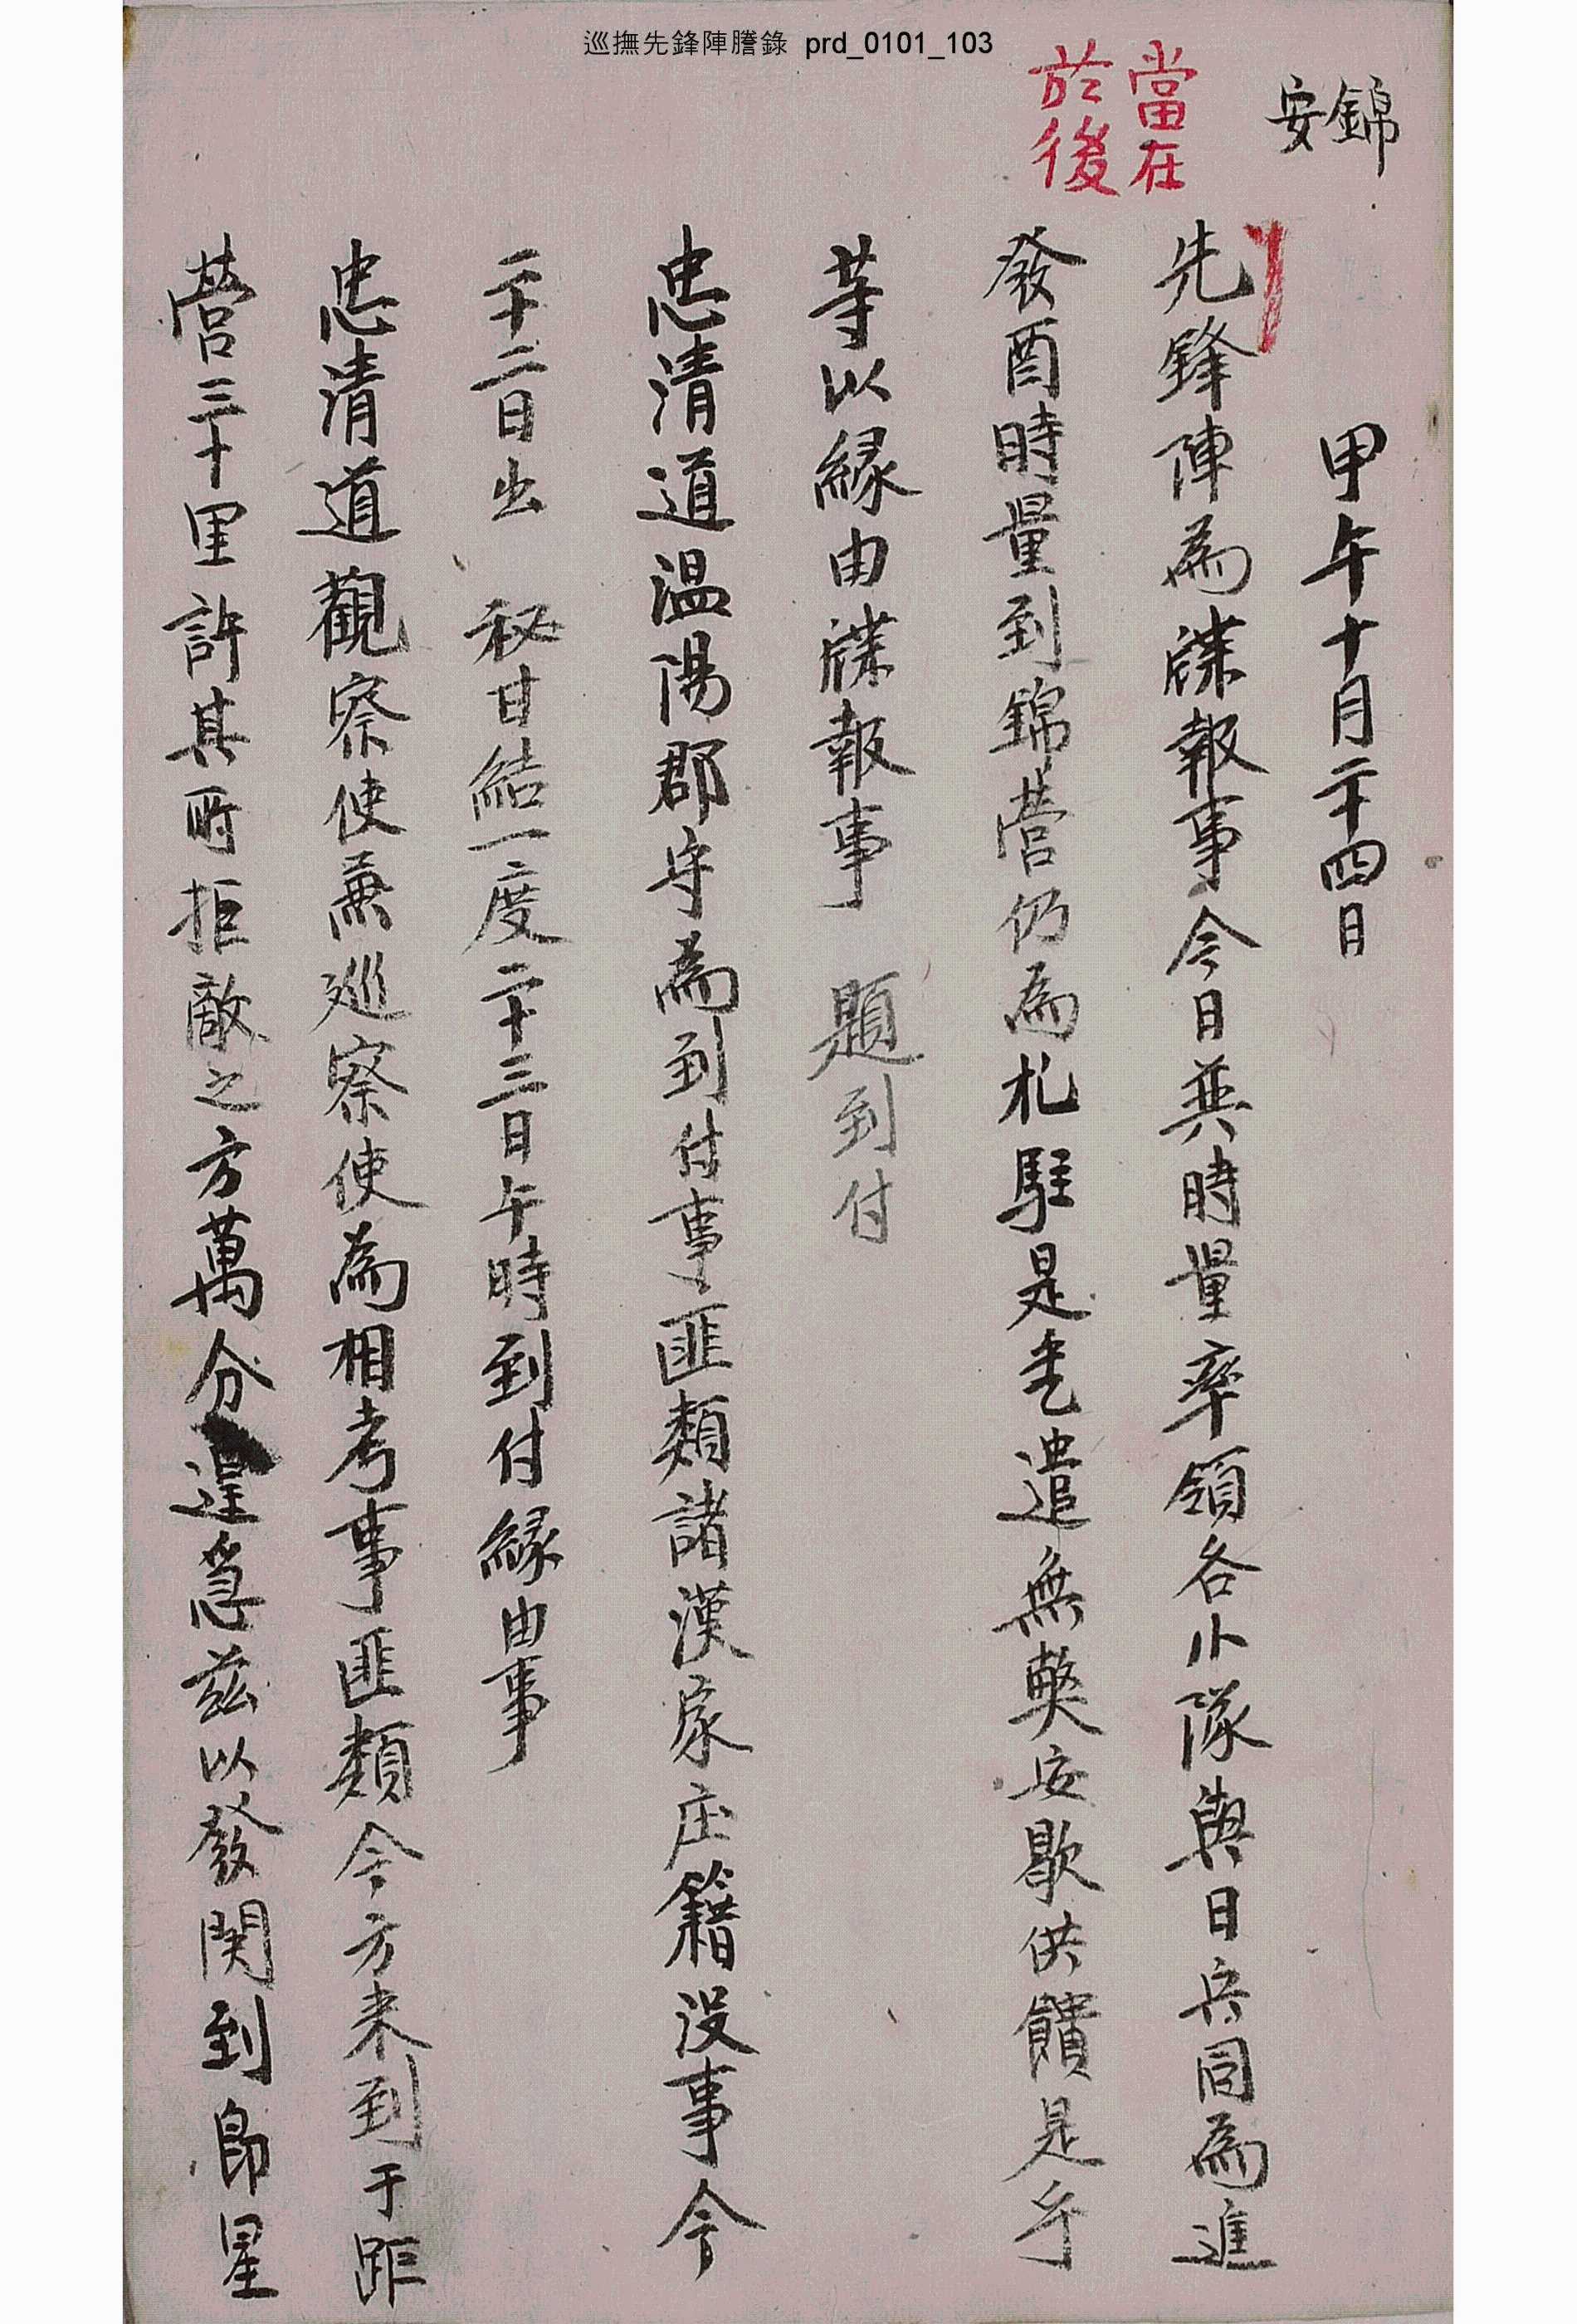 巡撫先鋒陣謄錄 prd_0101_103
錦
安
當在
於後
甲午十月二十四日
先鋒陣為牒報事今日巽時量率領各小隊與日兵同為進
發酉時量到錦營仍為札駐是乎遣無獘安歇供饋是乎
等以緣由牒報事 題到付
忠清道溫陽郡守為到付事匪類諸漢家庄籍沒事今
二十二日出 秘甘結一度二十三日午時到付緣由事
忠清道觀察使兼巡察使為相考事匪類今方來到于距
營三十里許其所拒敵之方萬分遑急茲以發関到卽星